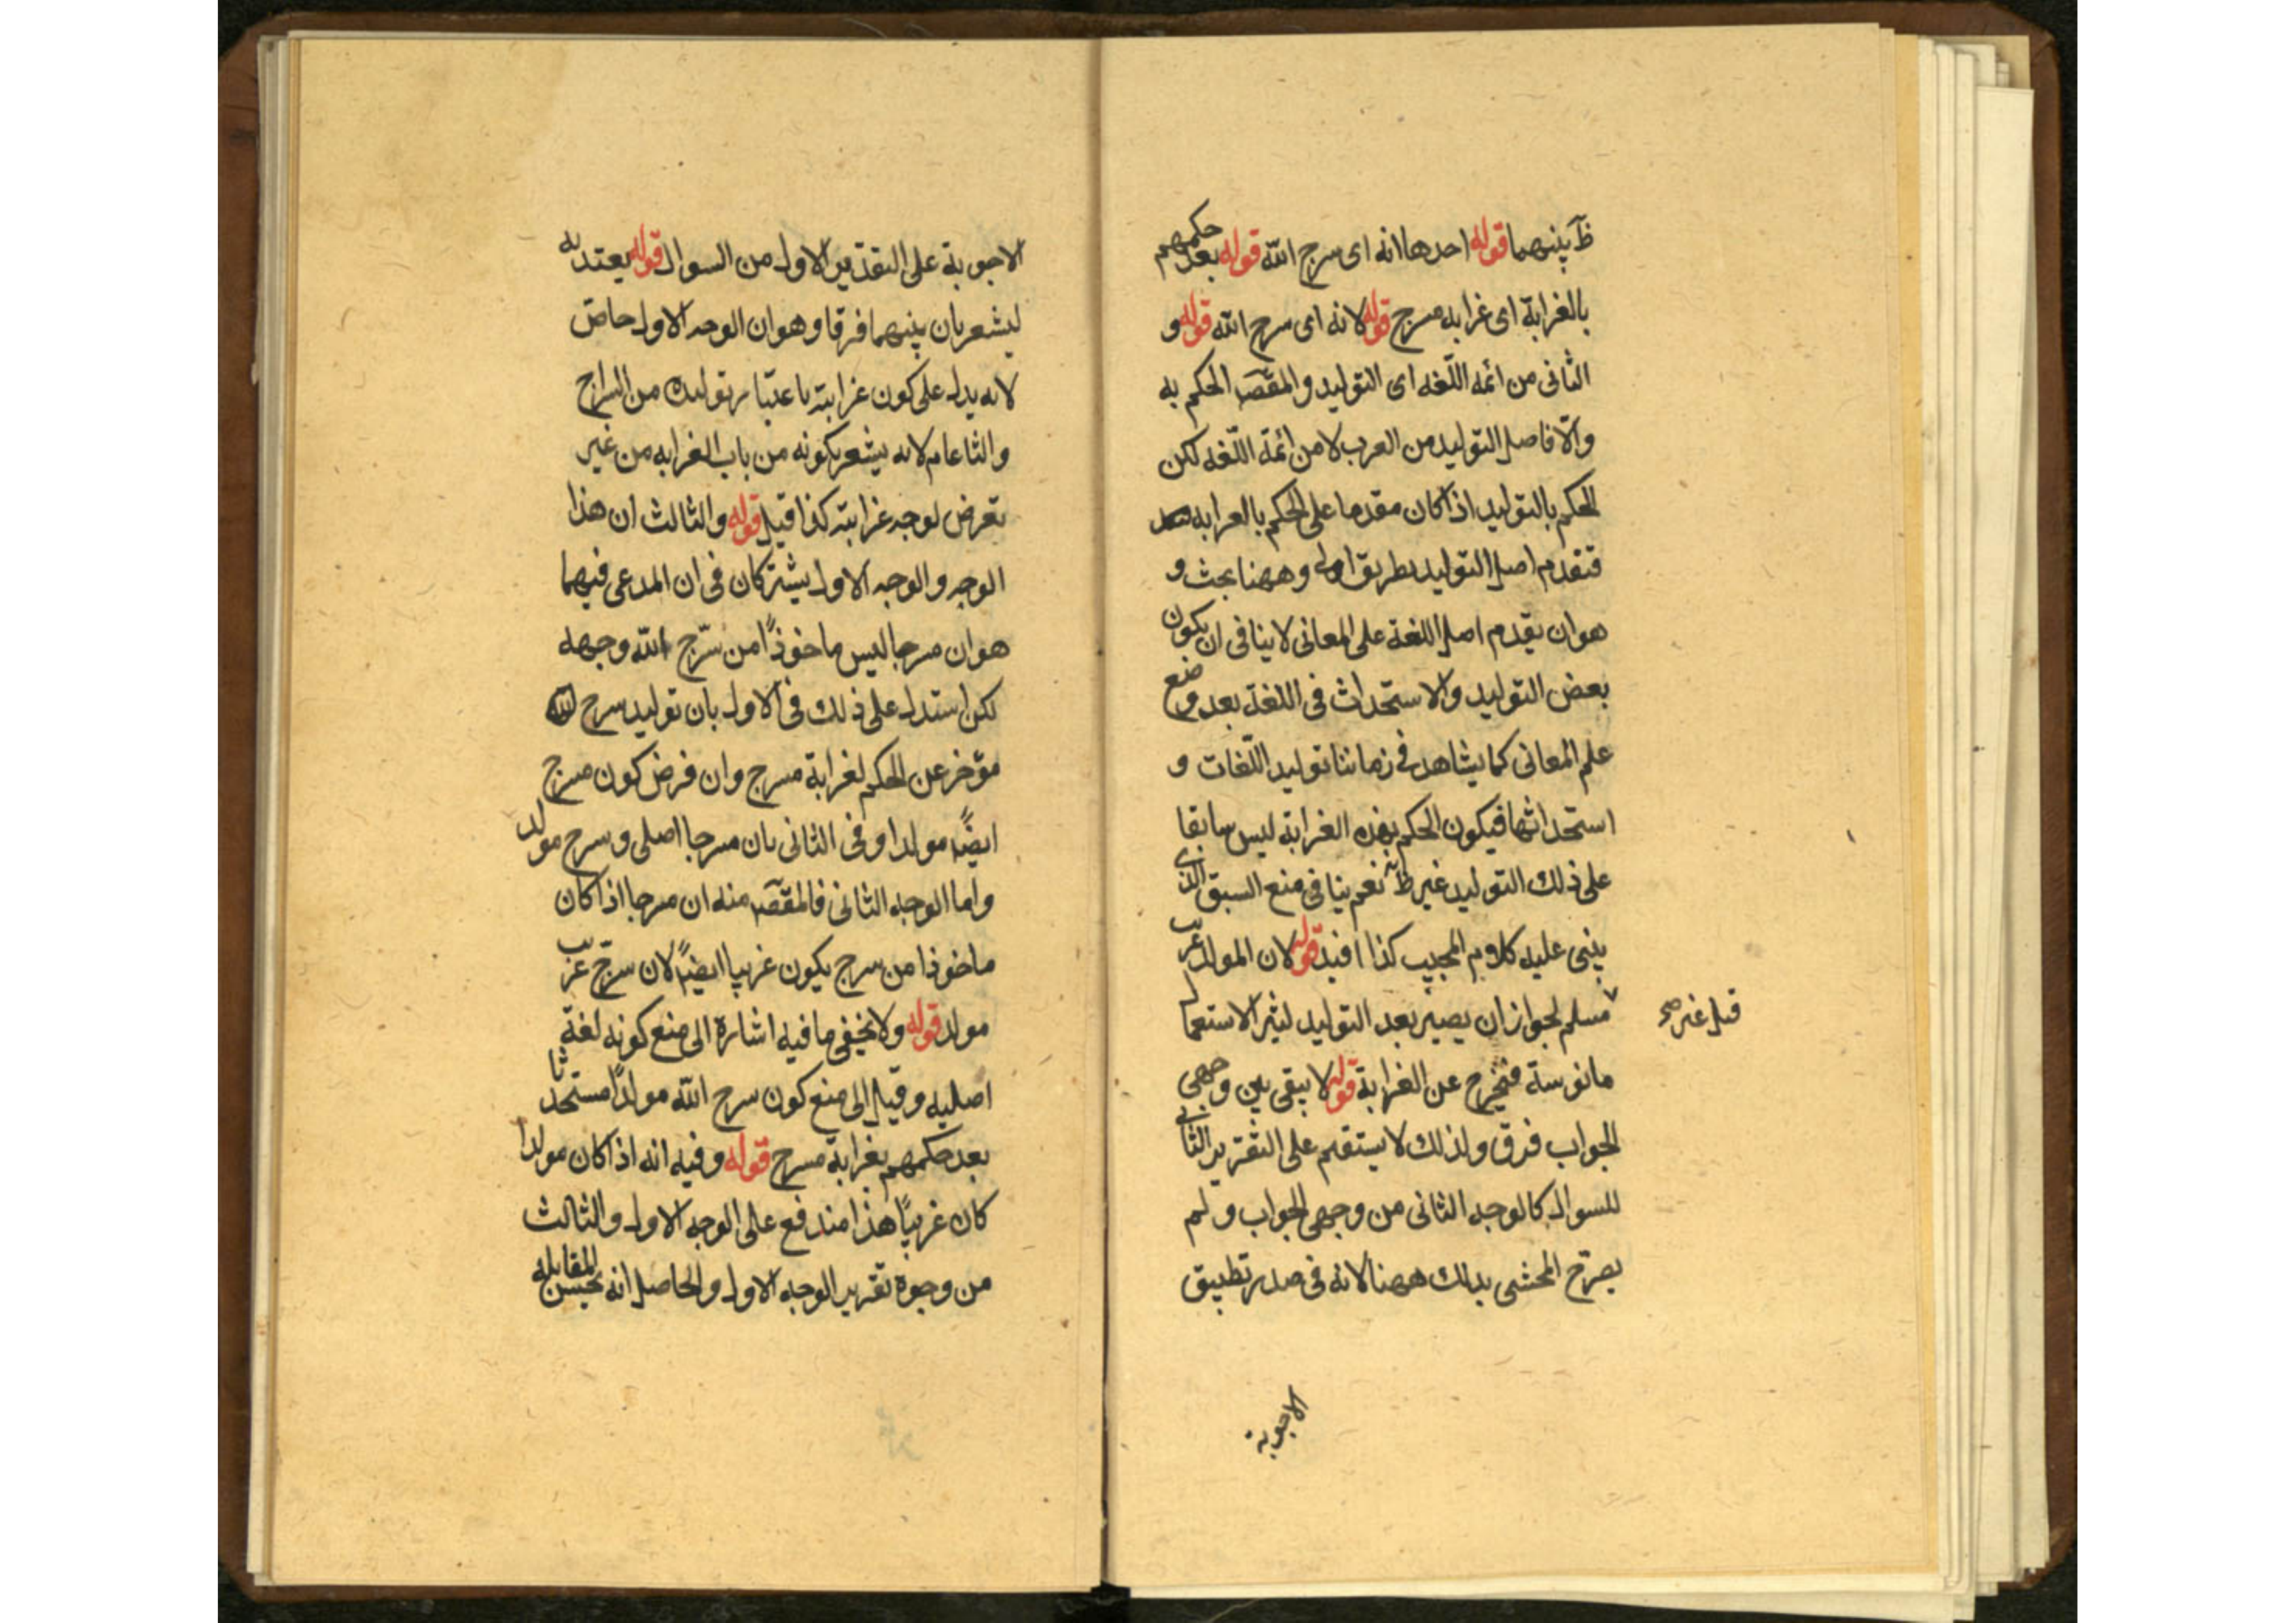 ظ بينهما قوله احدها انه اى سرج الله قوله بعد حكمهم
بالغرابة اى غرابه مسرج قوله لانه اى سرج الله قوله و
الثانى من ائمه اللّغه اى التوليد والمقصَ الحكم به
والّا فاصل التوليد من العرب لا من ائمّة اللّغه لكن
الحكم بالتوليد اذا كان مقدما على الحكم بالغرابه
فتقدم اصل التوليد بطريق اولى وههنا بحث و
هو ان تقدم اصل اللغة على المعانى لا ينافى ان يكون
بعض التوليد والاستحداث فى اللغة بعد وضع
علم المعانى كما يشاهد فى زماننا توليد اللّغات و
استحداثها فيكون الحكم بهذه الغرابة ليس سابقا
على ذلك التوليد غير ظ نعم ينافى منع السبق الذى
يبنى عليه كلام المجيب كذا افيد قوله لان المولد غريب
مسلم لجواز ان يصير بعد التوليد كثير الاستعمال
قيل غير صح
مانوسة فيخرج عن الغرابة قوله لا يبقى بين وجهى
الجواب فرق ولذلك لا يستقيم على التقرير الثانى
للسوال كالوجه الثانى من وجهى الجواب ولم
يصرّح المحشى بذلك ههنا لانه فى صدر تطبيق
الاجوبة
الاجوبة على التقدير الاول من السوال قوله يعتد به
ليشعر بان بينهما فرقا وهو ان الوجه الاول خاص
لانه يدل على كون غرابته باعتبار توليده من السراج
والثا عام لانه يشعر بكونه من باب الغرابه من غير
تعرض لوجه غرابته كذا قيل قوله والثالث ان هذا
الوجه والوجه الاول يشتركان فى ان المدعى فيهما
هو ان مسرجا ليس ماخوذًا من سرّج الله وجهه
لكن استدل على ذلك فى الاول بان توليد سرج الله
مؤخر عن الحكم لغرابة مسرج وان فرض كون مسرج
ايضًا مولدا وفى الثانى بان مسرجا اصلى وسرج مولد
واما الوجه الثانى فالمقصَ منه ان مسرجا اذا كان
ماخوذا من سرج يكون غريبا ايضًا لان سرّج غريب
مولد قوله ولا يخفى ما فيه اشارة الى منع كونه لغة
اصليه وقيل الى منع كون سرج الله مولدًا مستحدثا
بعد حكمهم بغرابة مسرج قوله وفيه انه اذا كان مولدا
كان غريبًا هذا مندفع على الوجه الاول والثالث
من وجوه تقرير الوجه الاول والحاصل انه يحسن المقابله